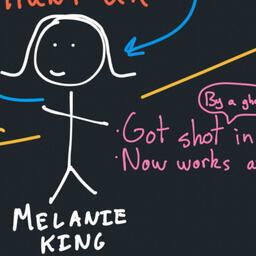 By a gh
· Got shot in
· Now works a
MELANIE
KING